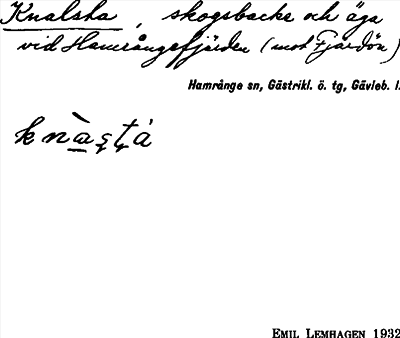 Knalsta, skogsbacke och äga
vid Hamrångefjärden (mot Fjärdön)
Hamrånge sn, Gästrikl. ö. tg, Gävleb. l.
EMIL LEMHAGEN 1932